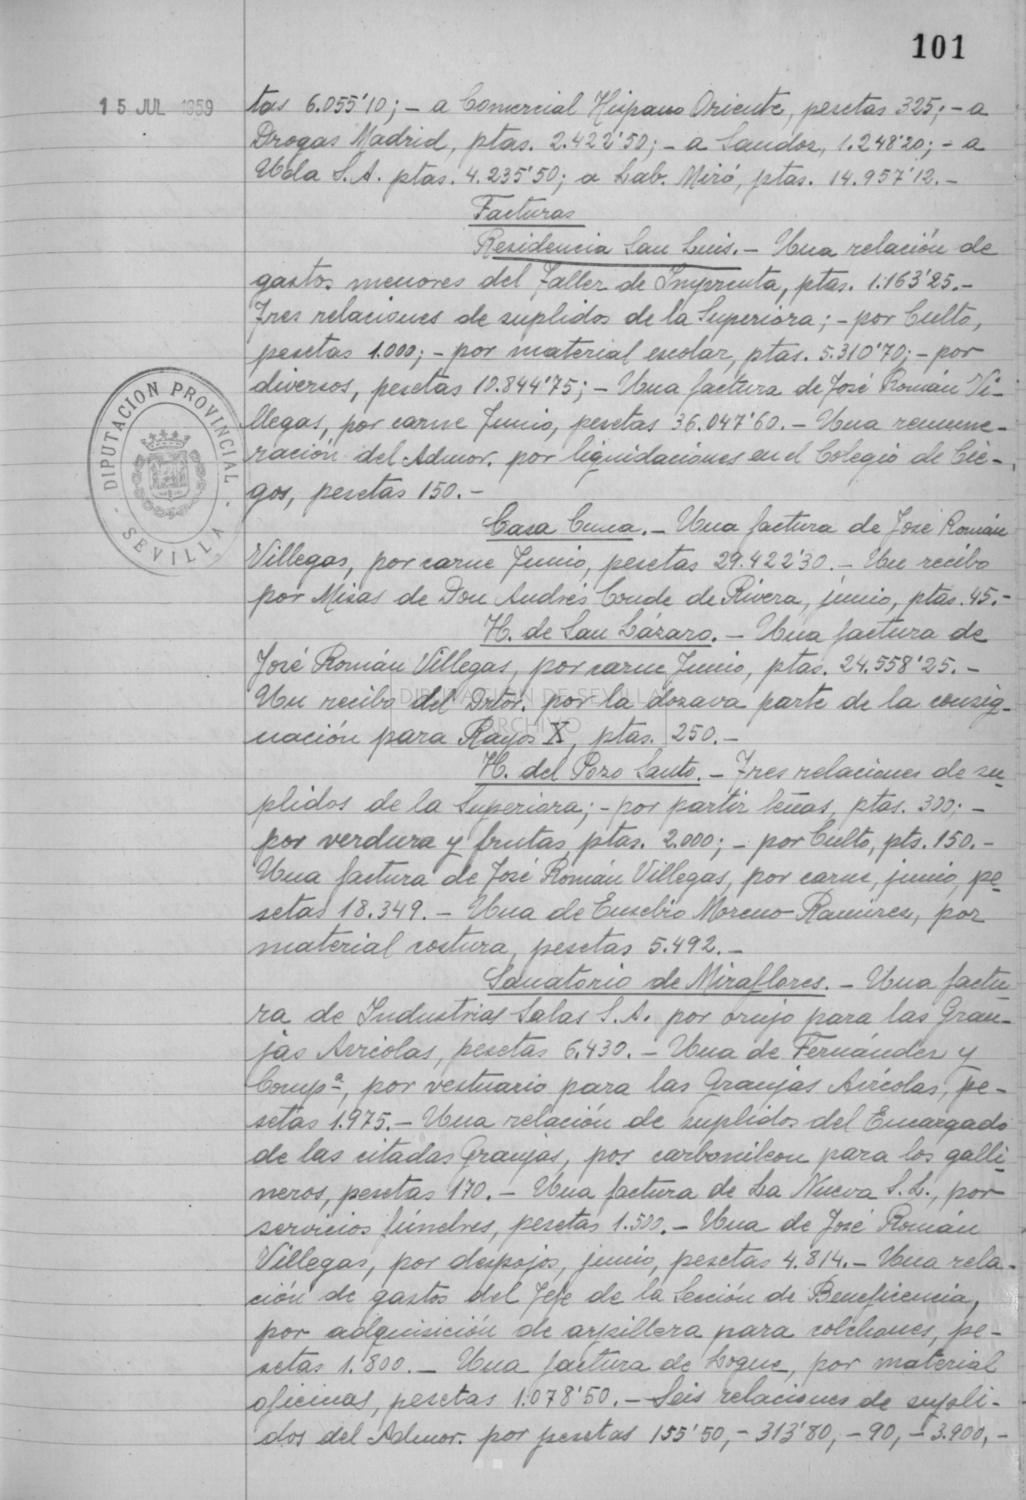 101
15 JUL 1959
tas 6.055'10; - a Comercial Hispano Oriente, pesetas 325; - a
Drogas Madrid, ptas. 2.422'50; - a Sandoz, 1.248'20; - a
S.A. ptas. 4.235'50; a Lab. Miró, ptas. 14.957'12.-
Facturas
Residencia San Luis. - Una relación de
gastos menores del Taller de Imprenta, ptas. 1.163'25.-
Tres relaciones de suplidos de la Superiora; - por Culto,
pesetas 1.000; - por material escolar, ptas. 5.310'70; - por
diversos, pesetas 10.844'75; - Una factura de José Román Vi-
llegas, por carne Junio, pesetas 36.047'60. - Una remune-
ración del Admor. por liquidaciones en el Colegio de Cie-
gos, pesetas 150.-
DIPUTACION PROVINCIAL
- SEVILLA -
Casa Cuna. - Una factura de José Román
Villegas, por carne Junio, pesetas 29.422'30. - Un recibo
por Misas de Don Andrés Conde de Rivera, junio, ptas. 45.-
H. de San Lázaro. - Una factura de
José Román Villegas, por carne Junio, ptas. 24.558'25.-
Un recibo del Drtor. por la dozava parte de la consig-
nación para Rayos X, ptas. 250.-
DIPUTACIÓN DE SEVILLA
ARCHIVO
H. del Pozo Santo. - Tres relaciones de su
plidos de la Superiora; - por partir leñas, ptas. 300; -
por verdura y frutas, ptas. 2.000; - por Culto, pts. 150.-
Una factura de José Román Villegas, por carne, junio, pe
setas 18.349. - Una de Eusebio Moreno Ramirez, por
material costura, pesetas 5.492.-
Sanatorio de Miraflores. - Una factu
ra de Industrias Salas S.A. por orujo para las Gran-
jas Avícolas, pesetas 6.430. - Una de Fernández y
Compª, por vestuario para las Granjas Avícolas, pe-
setas 1.975. - Una relación de suplidos del Encargado
de las citadas Granjas, por carbonilcon para los galli
neros, pesetas 170. - Una factura de La Nueva S.L., por
servicios fúnebres, pesetas 1.500. - Una de José Román
Villegas, por despojos, junio, pesetas 4.814. - Una rela-
ción de gastos del Jefe de la Sección de Beneficencia,
por adquisición de arpillera para colchones, pe-
setas 1.800. - Una factura de Logue, por material
oficinas, pesetas 1.078'50. - Seis relaciones de supli-
dos del Admor. por pesetas 155'50, - 313'80, - 90, - 3.900, -